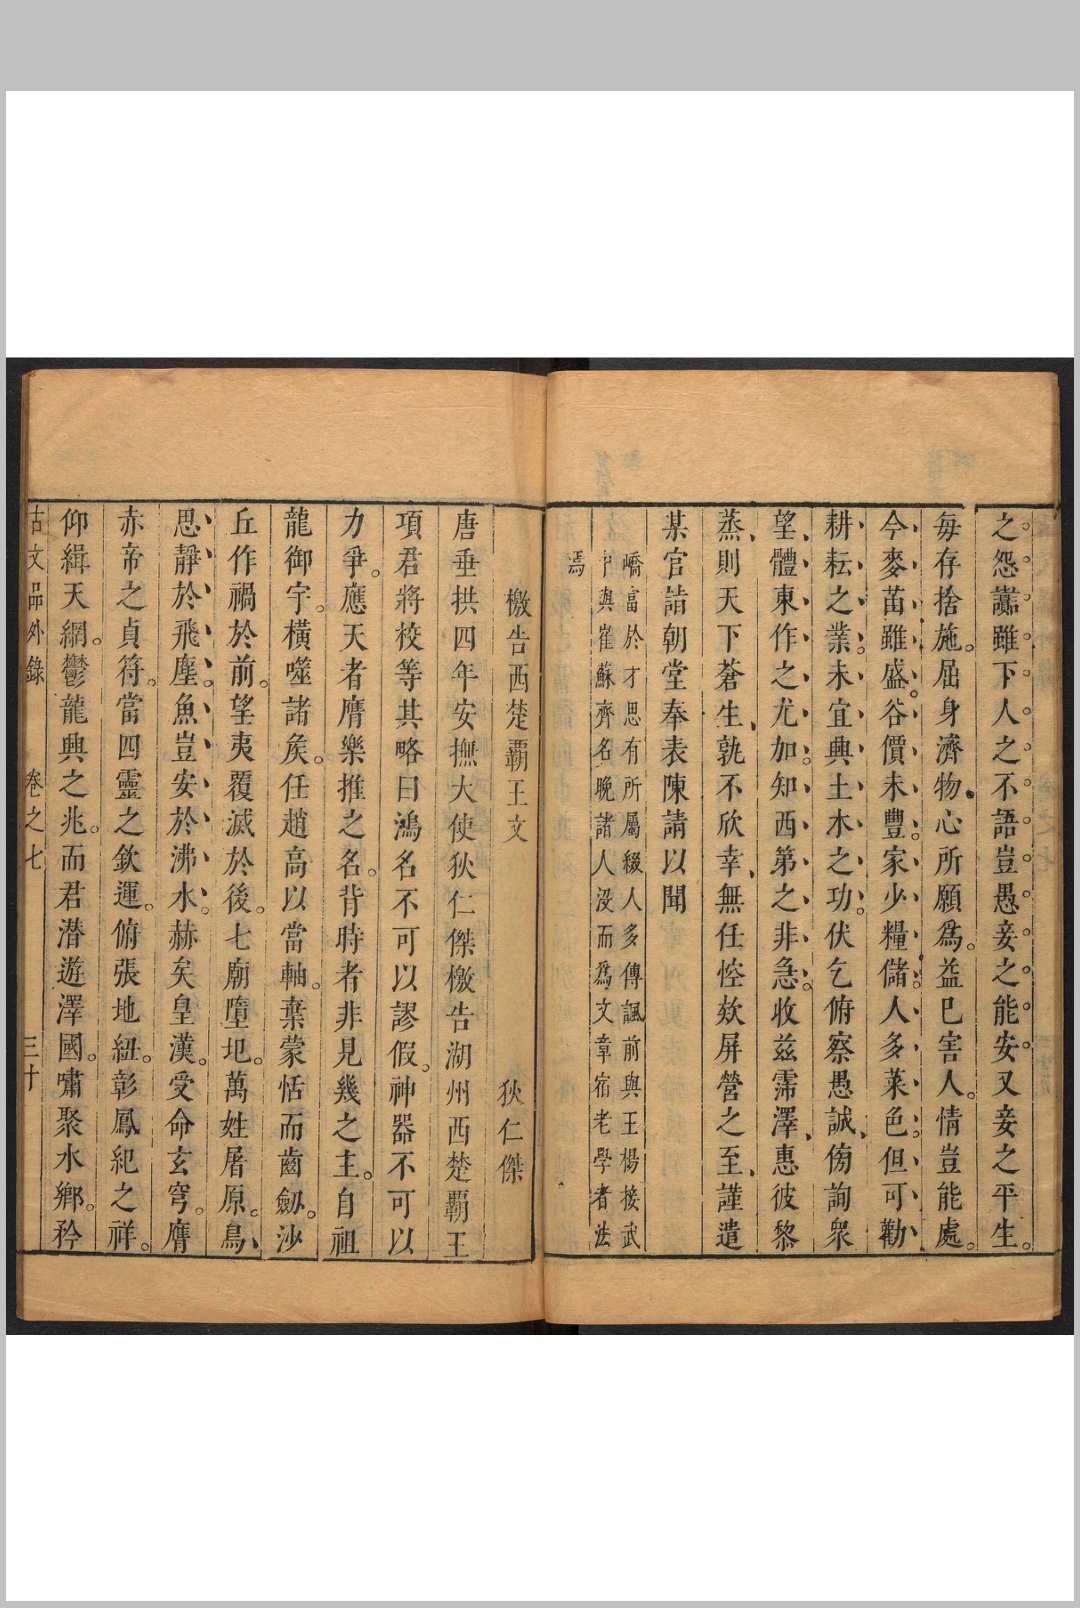 之怨讟雖下人之不語豈愚妾之能安又妾之平生
每存捨施屈身濟物心所願爲益巳害人情豈能處
今麥苗雖盛谷價未豐家少糧儲人多菜色但可勸
耕耘之業未宜興土木之功伏乞俯察愚誠傍詢衆
望體東作之尤加知西第之非急收兹霈澤惠彼黎
蒸則天下蒼生孰不欣幸無任悾欵屏營之至謹遣
某官詣朝堂奉表陳請以聞
嶠富於才思有所屬綴人多傳諷前與王楊接武
中與崔蘇齊名晚諸人没而爲文章宿老學者法
焉
檄告西楚覇王文 狄仁傑
唐垂拱四年安撫大使狄仁傑檄告湖州西楚覇王
項君將校等其略曰鴻名不可以謬假神器不可以
力爭應天者膺樂推之名背時者非見幾之主自祖
龍御宇橫噬諸矦任趙高以當軸棄蒙恬而齒劔沙
丘作禍於前望夷覆滅於後七廟墮圯萬姓屠原鳥
思靜於飛塵魚豈安於沸水赫矣皇漢受命玄穹膺
赤帝之貞符當四靈之欽運俯張地紐彰鳳紀之祥
仰緝天網鬱龍興之兆而君潜遊澤國嘯聚水鄉矜
古文品外錄 卷之七 三十